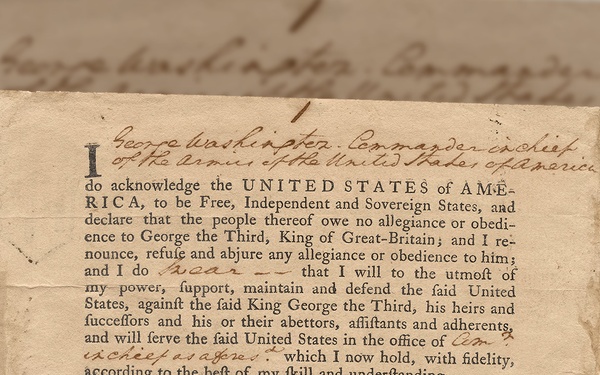 1
George Washington Commander in chief
of the Armies of the United States of America
I
do acknowledge the UNITED STATES of AME-
RICA, to be Free, Independent and Sovereign States, and
declare that the people thereof owe no allegiance or obedi-
ence to George the Third, King of Great-Britain; and I re-
nounce, refuſe and abjure any allegiance or obedience to him;
and I do swear — — that I will to the utmoſt of
my power, ſupport, maintain and defend the ſaid United
States, againſt the ſaid King George the Third, his heirs and
ſucceſſors and his or their abettors, aſſiſtants and adherents,
and will ſerve the ſaid United States in the office of Com.r
in chief as afores.d which I now hold, with fidelity,
according to the beſt of my ſkill and underſtanding.